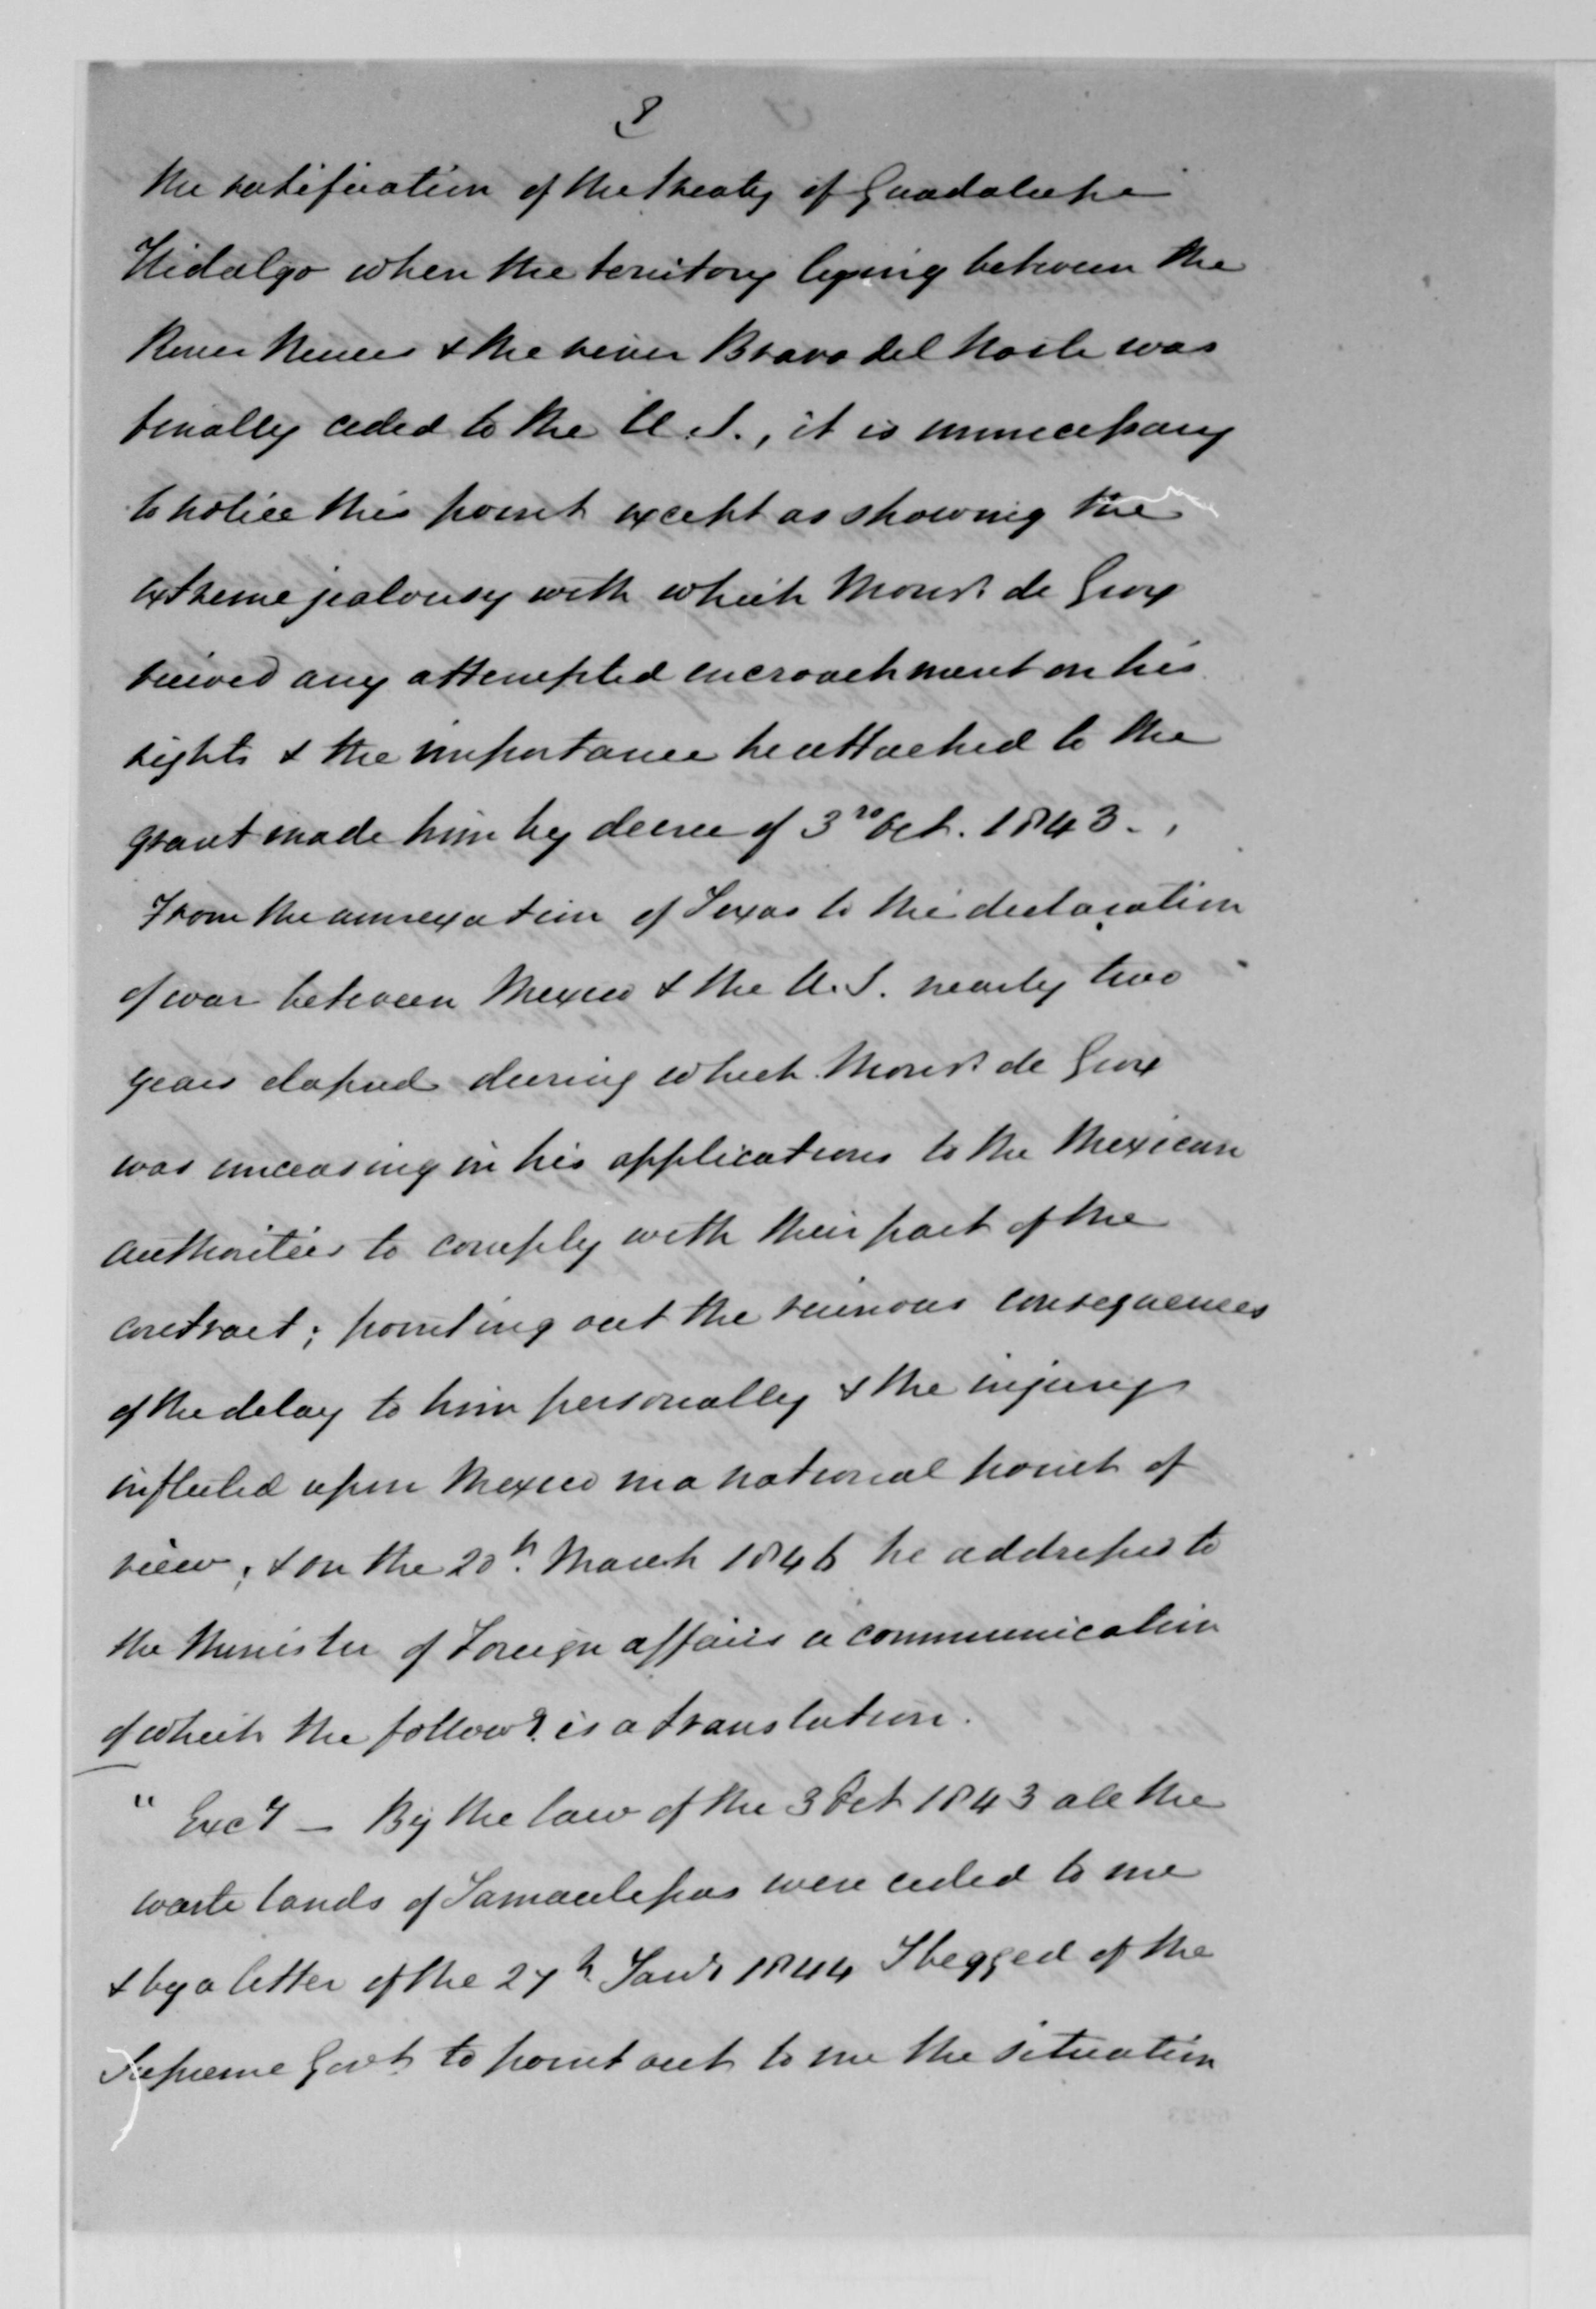 8
the ratification of the treaty of Guadalupe
Hidalgo when the territory lying between the
River Nueces & the river Bravo del Norte was
finally ceded to the U.S., it is unnecessary
to notice this point except as showing the
extreme jealousy with which Monsr. de Grox
viewed any attempted encroachment on his
rights & the importance he attached to the
grant made him by decree of 3rd Oct. 1843.
From the annexation of Texas to the declaration
of war between Mexico & the U.S. nearly two
years elapsed during which Monsr. de Grox
was unceasing in his applications to the Mexican
authorities to comply with their part of the
contract; pointing out the ruinous consequences
of the delay to him personally & the injury
inflicted upon Mexico in a national point of
view; & on the 20th. March 1846 he addresses to
the Minister of Foreign affairs a communication
of which the followg. is a translation.
" Excy — By the law of the 3 Oct 1843 all the
waste lands of Tamaulipas were ceded to me
& by a letter of the 27th Jany 1844 I begged of the
Supreme Govt. to point out to me the situation